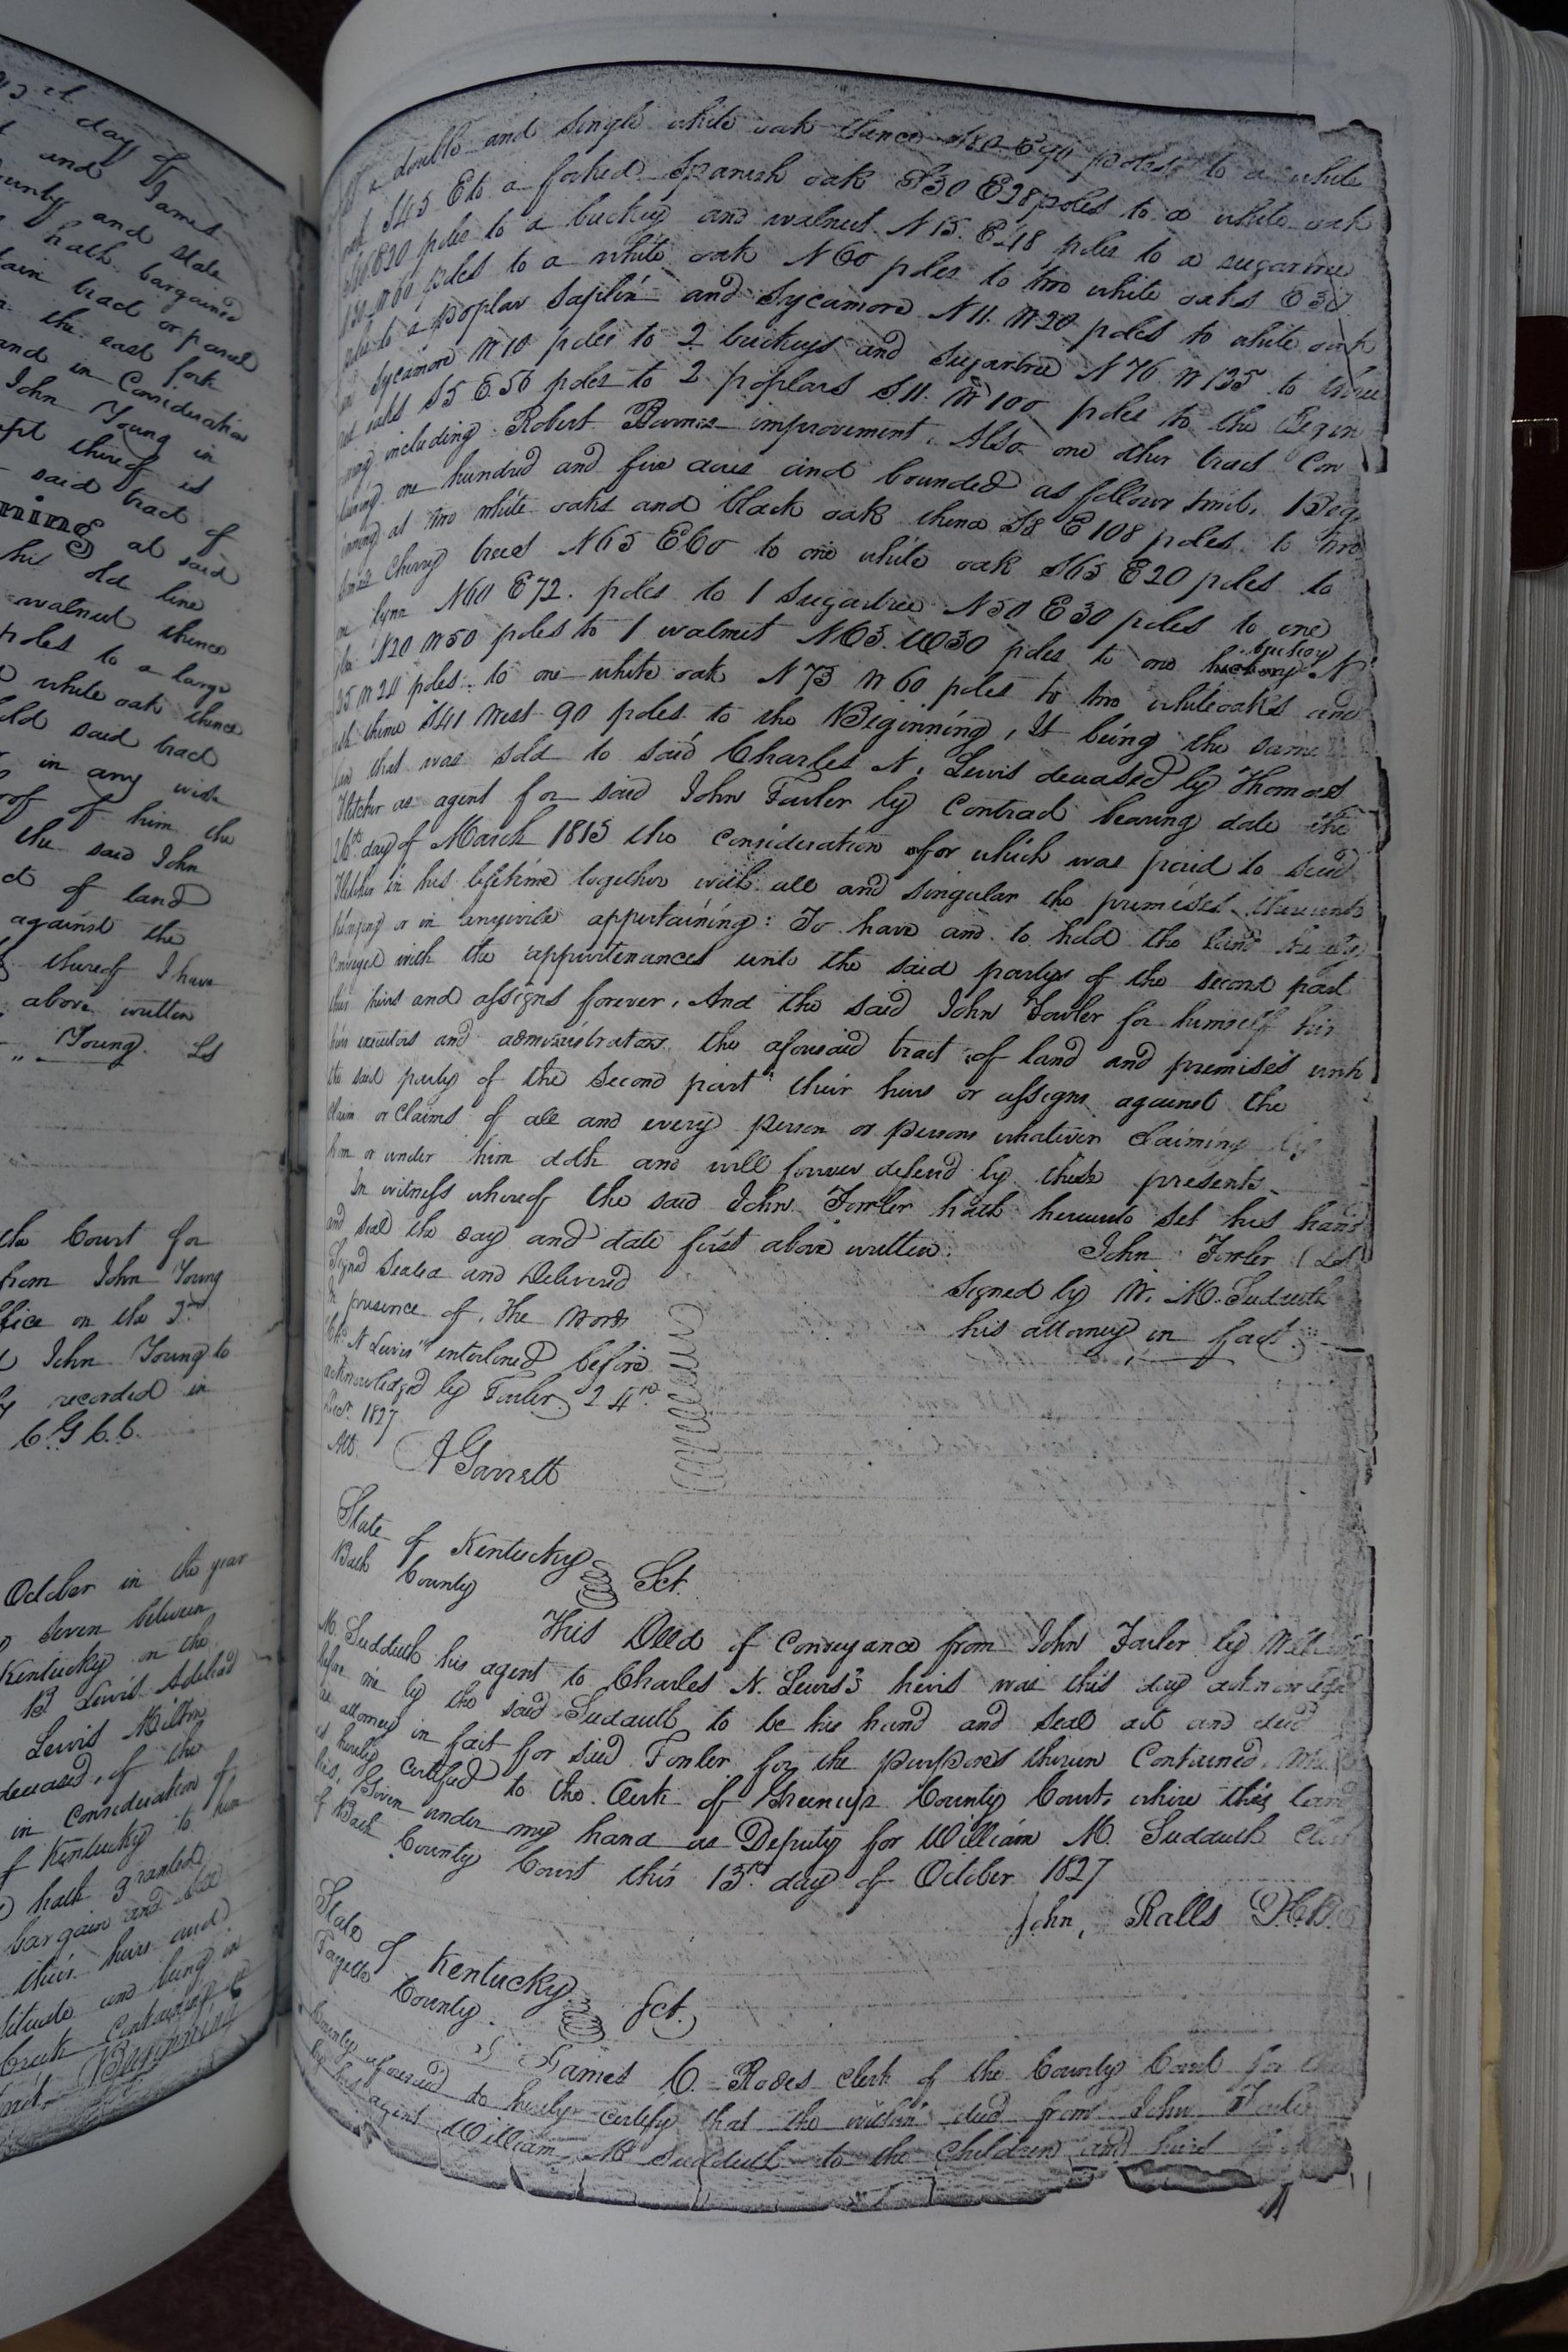 day of
and James
county and State
hath bargained
tract or parcel
the east fork
and in Consideration
John Young in
thereof is
said tract of
at said
his old line
walnut thence
poles to a large
white oak thence
said tract
in any wise
of him the
the said John
of land
against the
thereof I have
above written
Young Ls
the Court for
from John Young
office on the 3rd
John Young to
recorded in
C G C C
October in the year
Seven between
Kentucky on the
Lewis
Lewis Milton
deceased, of the
in Consideration of
of Kentucky to him
hath granted
bargain and
their heirs and
and being in
Creek Containing
Beginning
a double and single white oak thence S80 E90 poles to a white
oak S45 E to a forked Spanish oak S30 E28 poles to a white oak
E20 poles to a buckey and walnut N15 E48 poles to a sugartree
W60 poles to a white oak N60 poles to two white oaks E30
poles to a poplar saplin and Sycamore N11 W20 poles to white oak
and Sycamore W10 poles to 2 buckeys and Sugartree N76 W125 to three
oaks S5 E56 poles to 2 poplars S11 W100 poles to the Begin
ning including Robert Barnes improvement. Also one other tract Con
taining one hundred and five acres and bounded as follows towit, Beg
inning at two white oaks and black oak thence S8 E108 poles to two
small Cherry trees N65 E60 to one white oak S65 E20 poles to
one lynn N60 E72 poles to 1 Sugartree N50 E30 poles to one
N20 W50 poles to 1 walnut N65 W30 poles to one buckey N
W24 poles to one white oak N73 W60 poles to two whiteoaks and
ash thence S41 West 90 poles to the Beginning, It being the same
land that was sold to said Charles N. Lewis deceased by Thomas
Fletcher as agent for said John Fowler by Contract bearing date the
26th day of March 1815 the consideration for which was paid to said
Fletcher in his lifetime together with all and singular the premises thereunto
belonging or in anywise appertaining: To have and to hold the land hereby
Conveyed with the appurtenances unto the said partys of the second part
their heirs and assigns forever. And the said John Fowler for himself his
heirs executors and administrators the aforesaid tract of land and premises unto
the said party of the Second part their heirs or assigns against the
Claim or Claims of all and every person or persons whatever claiming by
him or under him doth and will forever defend by these presents
In witness whereof the said John Fowler hath hereunto set his hand
and seal the day and date first above written. John Fowler (Ls)
Signed Sealed and Delivered Signed by W. M. Sudduth
In presence of, The words his attorney in fact.
"Chs N Lewis" enterlined before
acknowledged by Fowler 24th
Decr. 1827
Att. A Garrett
State of Kentucky
Bath County Sct.
This Deed of Conveyance from John Fowler by William
M. Sudduth his agent to Charles N. Lewis's heirs was this day acknowledged
before me by the said Sudduth to be his hand and seal act and deed
as attorney in fact for said Fowler for the purposes therein Contained. Which
is hereby certified to the Clerk of Greenup County Court, where this land
lies, Given under my hand as Deputy for William M. Sudduth Clerk
of Bath County Court this 13th day of October 1827
John, Ralls
State of Kentucky
Fayette County Sct.
I James C. Rodes clerk of the County Court for the
County aforesaid do hereby certify that the within deed from John Fowler
by his agent William M Sudduth to the Children and heirs